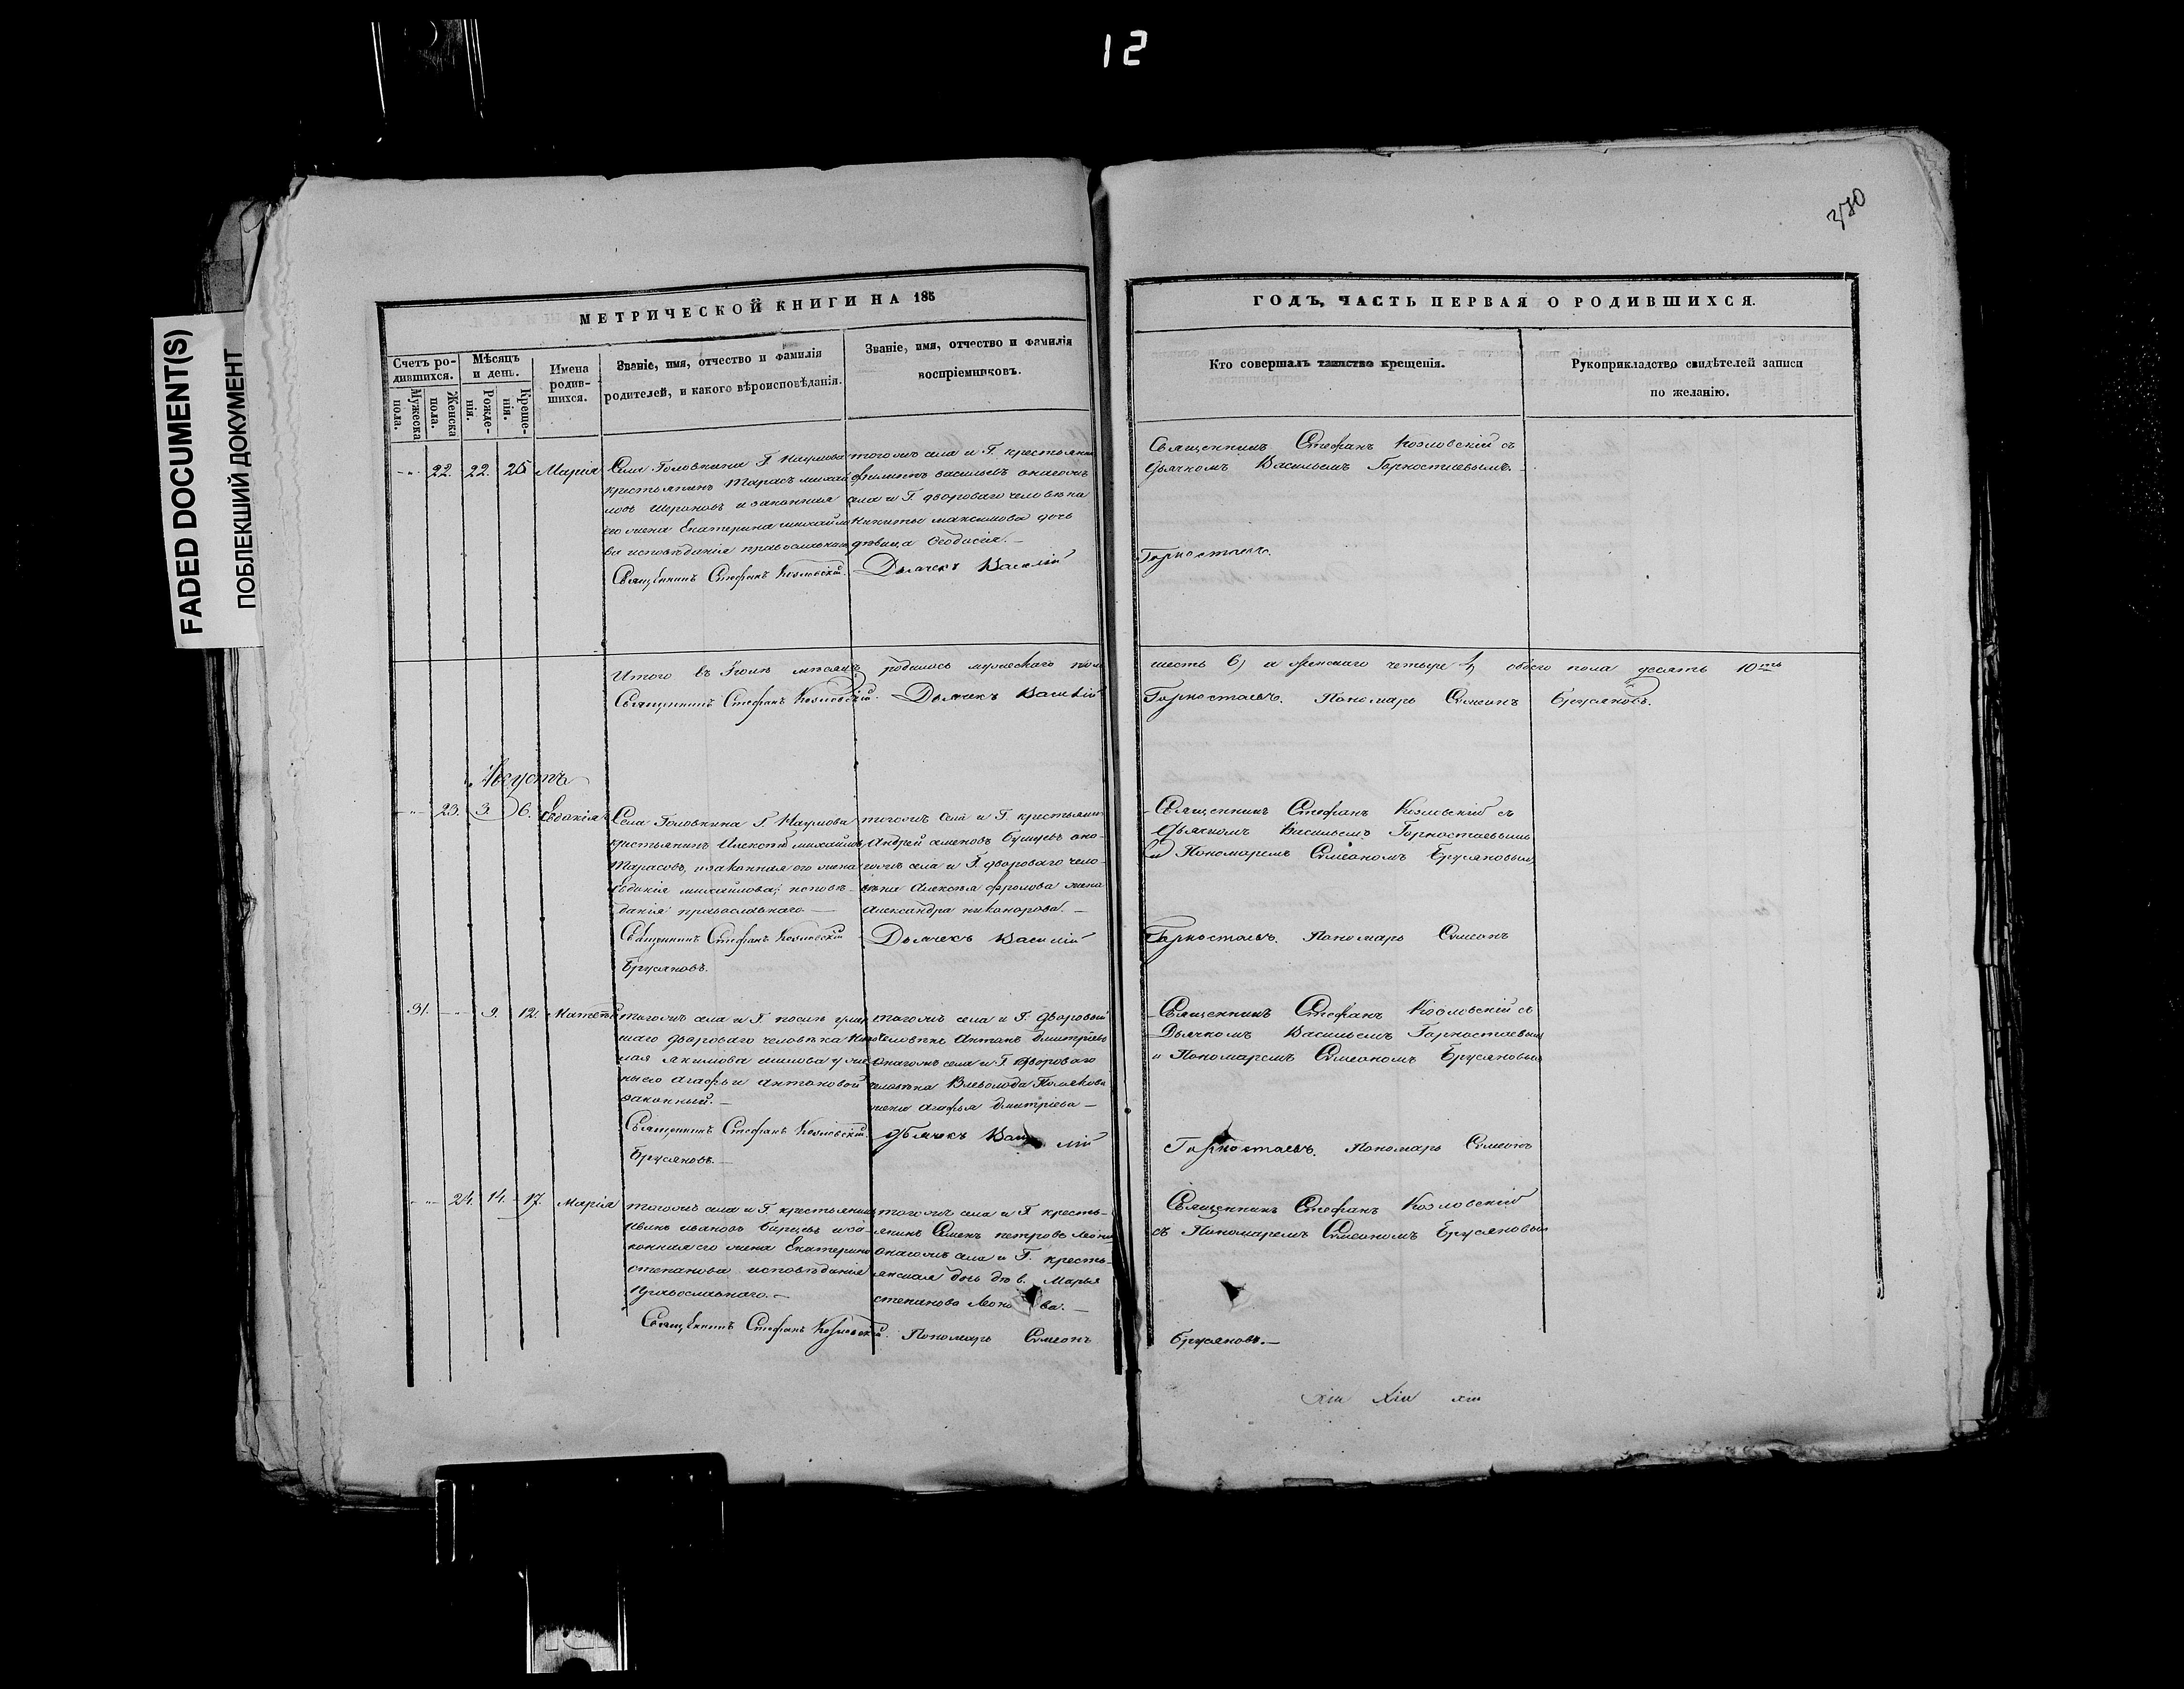 12
370
FADED DOCUMENT(S)
ПОБЛЕКШИЙ ДОКУМЕНТ
МЕТРИЧЕСКОЙ КНИГИ НА 185
ГОДЪ, ЧАСТЬ ПЕРВАЯ О РОДИВШИХСЯ.
Счетъ ро-
дившихся.
Мужеска
пола.
Женска
пола.
Мѣсяцъ
и день.
Рожде-
нія.
Креще-
нія.
Имена
родив-
шихся.
Званіе, имя, отчество и фамилія
родителей, и какого вѣроисповѣданія.
Званіе, имя, отчество и фамилія
воспріемниковъ.
Кто совершалъ таинство крещенія.
Рукоприкладство свидѣтелей записи
по желанію.
22. 22. 25 Марія
Села Головкина Г. Наумова
крестьянинъ Тарасъ михай
ловъ и законная
его жена Екатерина михайло
ва исповѣданія православнаго
Священникъ Стефанъ Козловскій.
тогожъ села и Г. крестьянин
Филиппъ васильевъ онагожъ
села и Г. двороваго человѣка
Никиты максимова дочь
дѣвица Ѳеодосія.
Дьячекъ Василій
Священникъ Стефанъ Козловскій съ
Дьячкомъ Васильемъ Горностаевымъ.
Горностаевъ.
Итого въ Іюлѣ мѣсяцѣ родилось мужескаго пола
шесть 6) а женскаго четыре 4) обоего пола десять 10ть
Священникъ Стефанъ Козловскій. Дьячекъ Василій
Горностаевъ. Пономарь Симеонъ Брусяновъ.
Августъ
23. 3. 6. Евдокія
Села Головкина Г. Наумова
крестьянинъ Алексѣй михайловъ
Тарасовъ, и законная его жена
Евдокія михайлова; исповѣ-
данія православнаго.
Священникъ Стефанъ Козловскій
Брусяновъ.
тогожъ села и Г. крестьянин
Андрей семеновъ оно-
гожъ села и Г. двороваго чело-
вѣка Алексѣя фролова жена
Александра никонорова.
Дьячекъ Василій
Священникъ Стефанъ Козловскій съ
Дьячкомъ Васильемъ Горностаевымъ
и Пономаремъ Симеономъ Брусяновым
Горностаевъ. Пономарь Симеонъ
31. 9. 12. Матвѣй
тогожъ села и Г. послѣ умер
шаго двороваго человѣка
Якимова
Агафьи Антоновой
законный.
Священникъ Стефанъ Козловскій.
Брусяновъ.
тогожъ села и Г. дворовый
человѣкъ Антонъ Дмитріевъ
Онагожъ села и Г. двороваго
человѣка Всеволода Полякова
жена Агафья Дмитріева
Дьячекъ Василій
Священникъ Стефанъ Козловскій съ
Дьячкомъ Васильемъ Горностаевым
и Пономаремъ Симеономъ Брусяновым
Горностаевъ. Пономарь Симеонъ
24. 14. 17. Марія
тогожъ села и Г. крестьянинъ
Иванъ ивановъ и за-
конная его жена Екатерина
степанова исповѣданія
Православнаго.
Священникъ Стефанъ Козловскій.
тогожъ села и Г. кресть-
янинъ Семенъ петровъ
Онагожъ села и Г. кресть-
янская дочь дѣв. Марья
степанова
Пономарь Симеонъ
Священникъ Стефанъ Козловскій
съ Пономаремъ Симеономъ Брусяновым
Брусяновъ.